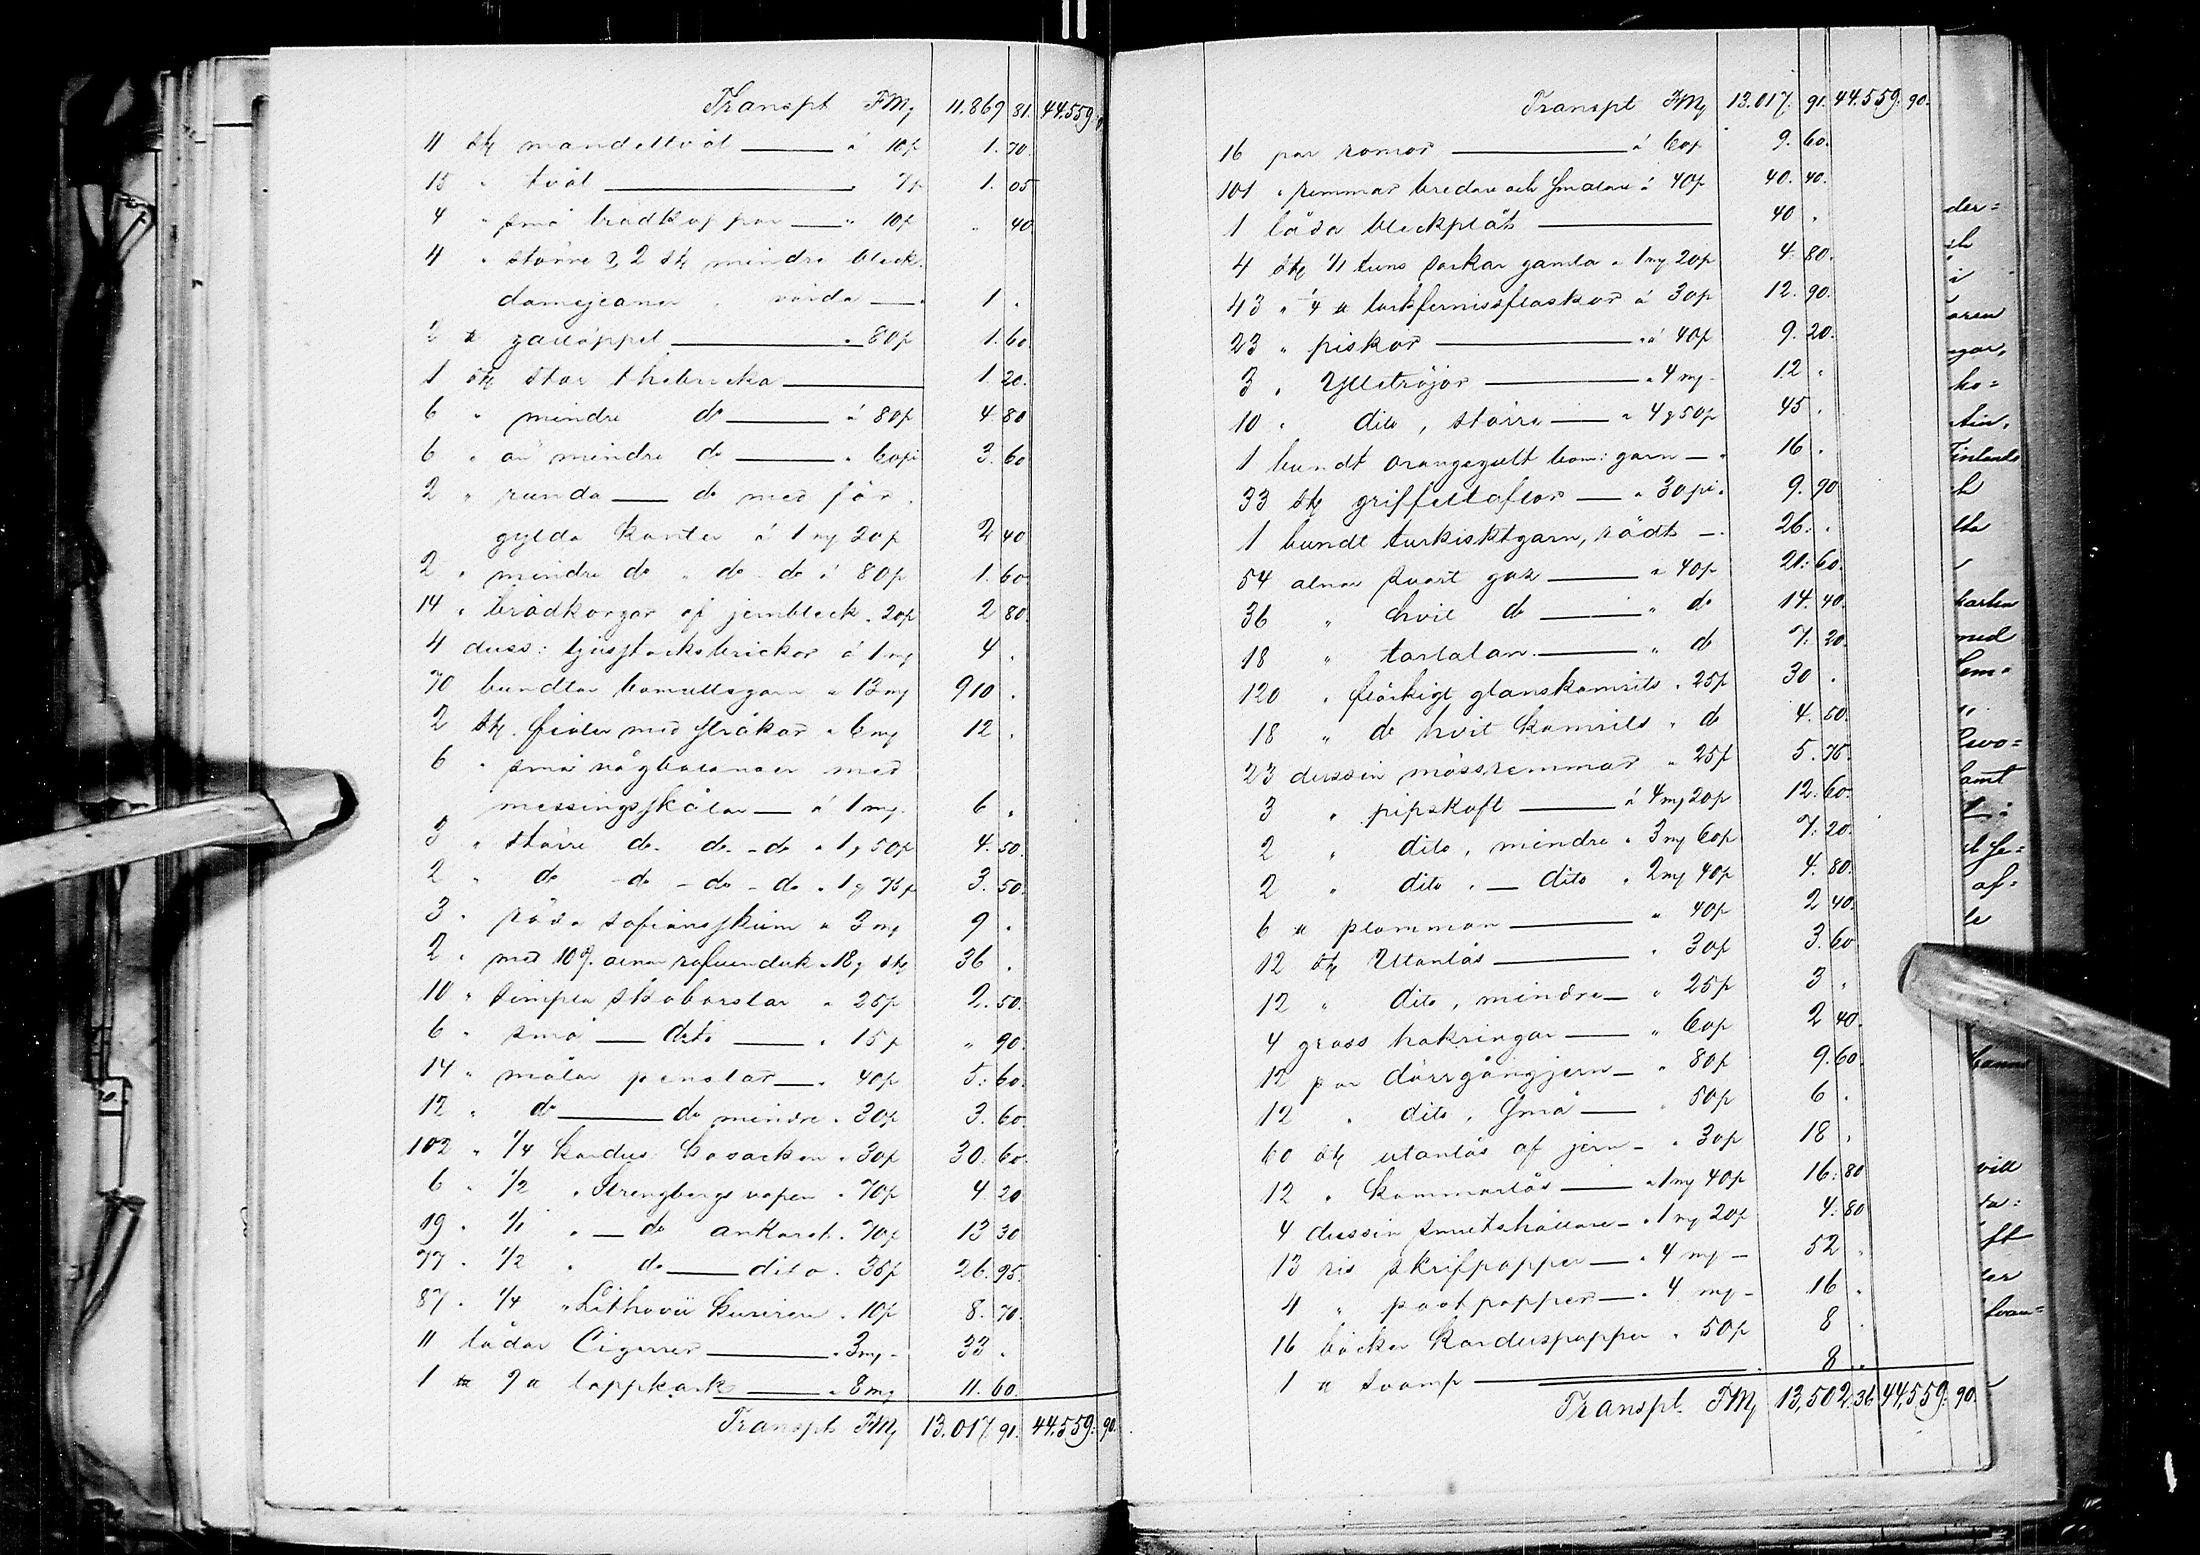 Transpt FMk 11.869 81. 44.559.
11 stk mandeltvål — á 10p 1. 70.
15 " tvål — " 7p 1. 05
4 " små brödkoppar — " 10p " 40
4 " större & 2 stk mindre bleck-
damejeaner, värda — 1 .
2 ℔ galläppel — " 80p 1. 60.
1 stk stor thebricka — 1. 20.
6 " mindre do — á 80p 4. 80
6 " än mindre do — " 60pi 3. 60
2 " runda — do med för-
gylda kanter á 1 mk 20p 2 40
2 " mindre do " do - do á 80p 1. 60
14 " brödkorgar af jernbleck . 20p 2 80.
4 duss: ljusstocksbrickor á 1 mk 4 .
70 bundtar bomullsgarn " 13 mk 910 .
2 stk. fioler med stråkar " 6 mk 12 .
6 " små vågbalanser med
messingsskålar — á 1 mk. 6 .
3 " större do - do - do " 1 " 50p 4. 50.
2 " do - do - do - do " 1 " 75p 3. 50.
3 " röda safiansskinn " 3 mk 9 .
2 " med 109. alnar rafvenduk " 18 " stk 36 .
10 " simpla skoborstar " 25p 2. 50.
6 " små — dito — " 15p " 90.
14 " målar penslar — " 40p 5. 60.
12 " do — do mindre " 30p 3. 60.
102 " 1/4 kardus Kosacken " 30p 30. 60.
6 " 1/2 " Strengbergs vapen " 70p 4. 20
19 " 1/1 " — do ankaret . 70p 13 30
77 " 1/2 " do — dito . 35p 26. 95.
87 " 1/4 " Lithovii Kuriren " 10p 8. 70.
11 lådor Cigarrer — " 3 mk - 33 .
1 ℔ 9 ℔ tappkork — " 8 mk 11. 60.
Transpt FMk 13.017 91. 44.559. 90.
Transpt FMk 13.017. 91. 44.559. 90.
16 par ramar — á 60p 9. 60.
101 " remmar bredare och smalare á 40p 40. 40.
1 låda bleckplåt — 40 .
4 stk 1/1 tuns säckar gamla " 1 mk 20p 4. 80.
43 " 1/4 ℔ torkfernissflaskor á 30p 12. 90.
23 " piskor — " á 40p 9. 20.
3 " Ylletröjor — " 4 mk - 12 "
10 " dito, större — " 4 " 50p 45 .
1 bundt orangegult bom: garn — 16 .
33 stk griffeltaflor — " 30pi. 9. 90
1 bundt turkisktgarn, rödt — 26. .
54 alnar svart gaz — " 40p 21. 60.
36 " hvit do — " do 14. 40.
18 " tarlatan — " do 7. 20.
120 " flärkigt glanskamrits " 25p 30 .
18 " do hvit kamrits " do 4. 50.
23 dussin mössremmar " 25p 5. 75.
3 " pipskaft — á 4 mk 20p 12. 60.
2 " dito, mindre " 3 mk 60p 7. 20.
2 " dito " — dito " 2 mk 40p 4. 80.
6 ℔ plommon — " 40p 2 40.
12 stk Utanlås — " 30p 3. 60
12 " dito, mindre — " 25p 3 .
4 gross hakringar — " 60p 2 40.
12 par dörrgångjern — " 80p 9. 60.
12 " dito, små — " 50p 6 .
60 stk utanlås af jern — " 30p 18 .
12 " kammarlås — " 1 mk 40p 16. 80
4 dussin smutshållare — " 1 mk 20p 4. 80
13 ris skrifpapper — " 4 mk - 52 .
4 " postpapper — " 4 mk - 16 .
16 böcker karduspapper " 50p 8 .
1 ℔ svamp — 8 .
Transpt. FMk 13,502. 36 44,559. 90.